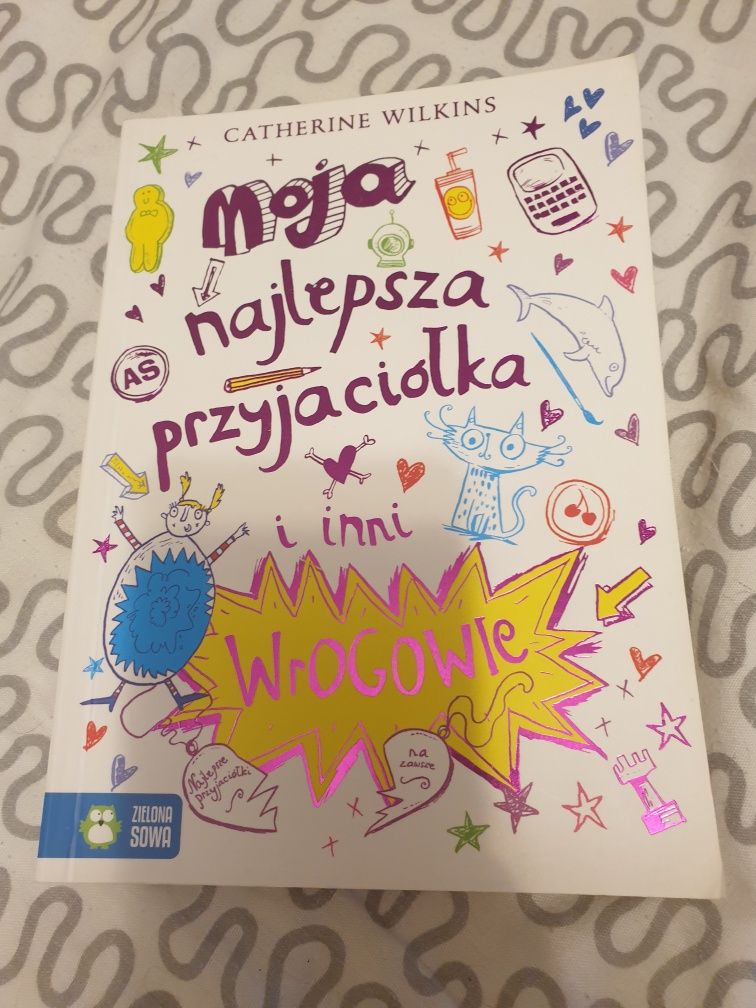 CATHERINE WILKINS
Moja
najlepsza
AS
przyjaciółka
i inni
WrOGOWIe
Najlepsze
przyjaciółki
na
zawsze
ZIELONA
SOWA